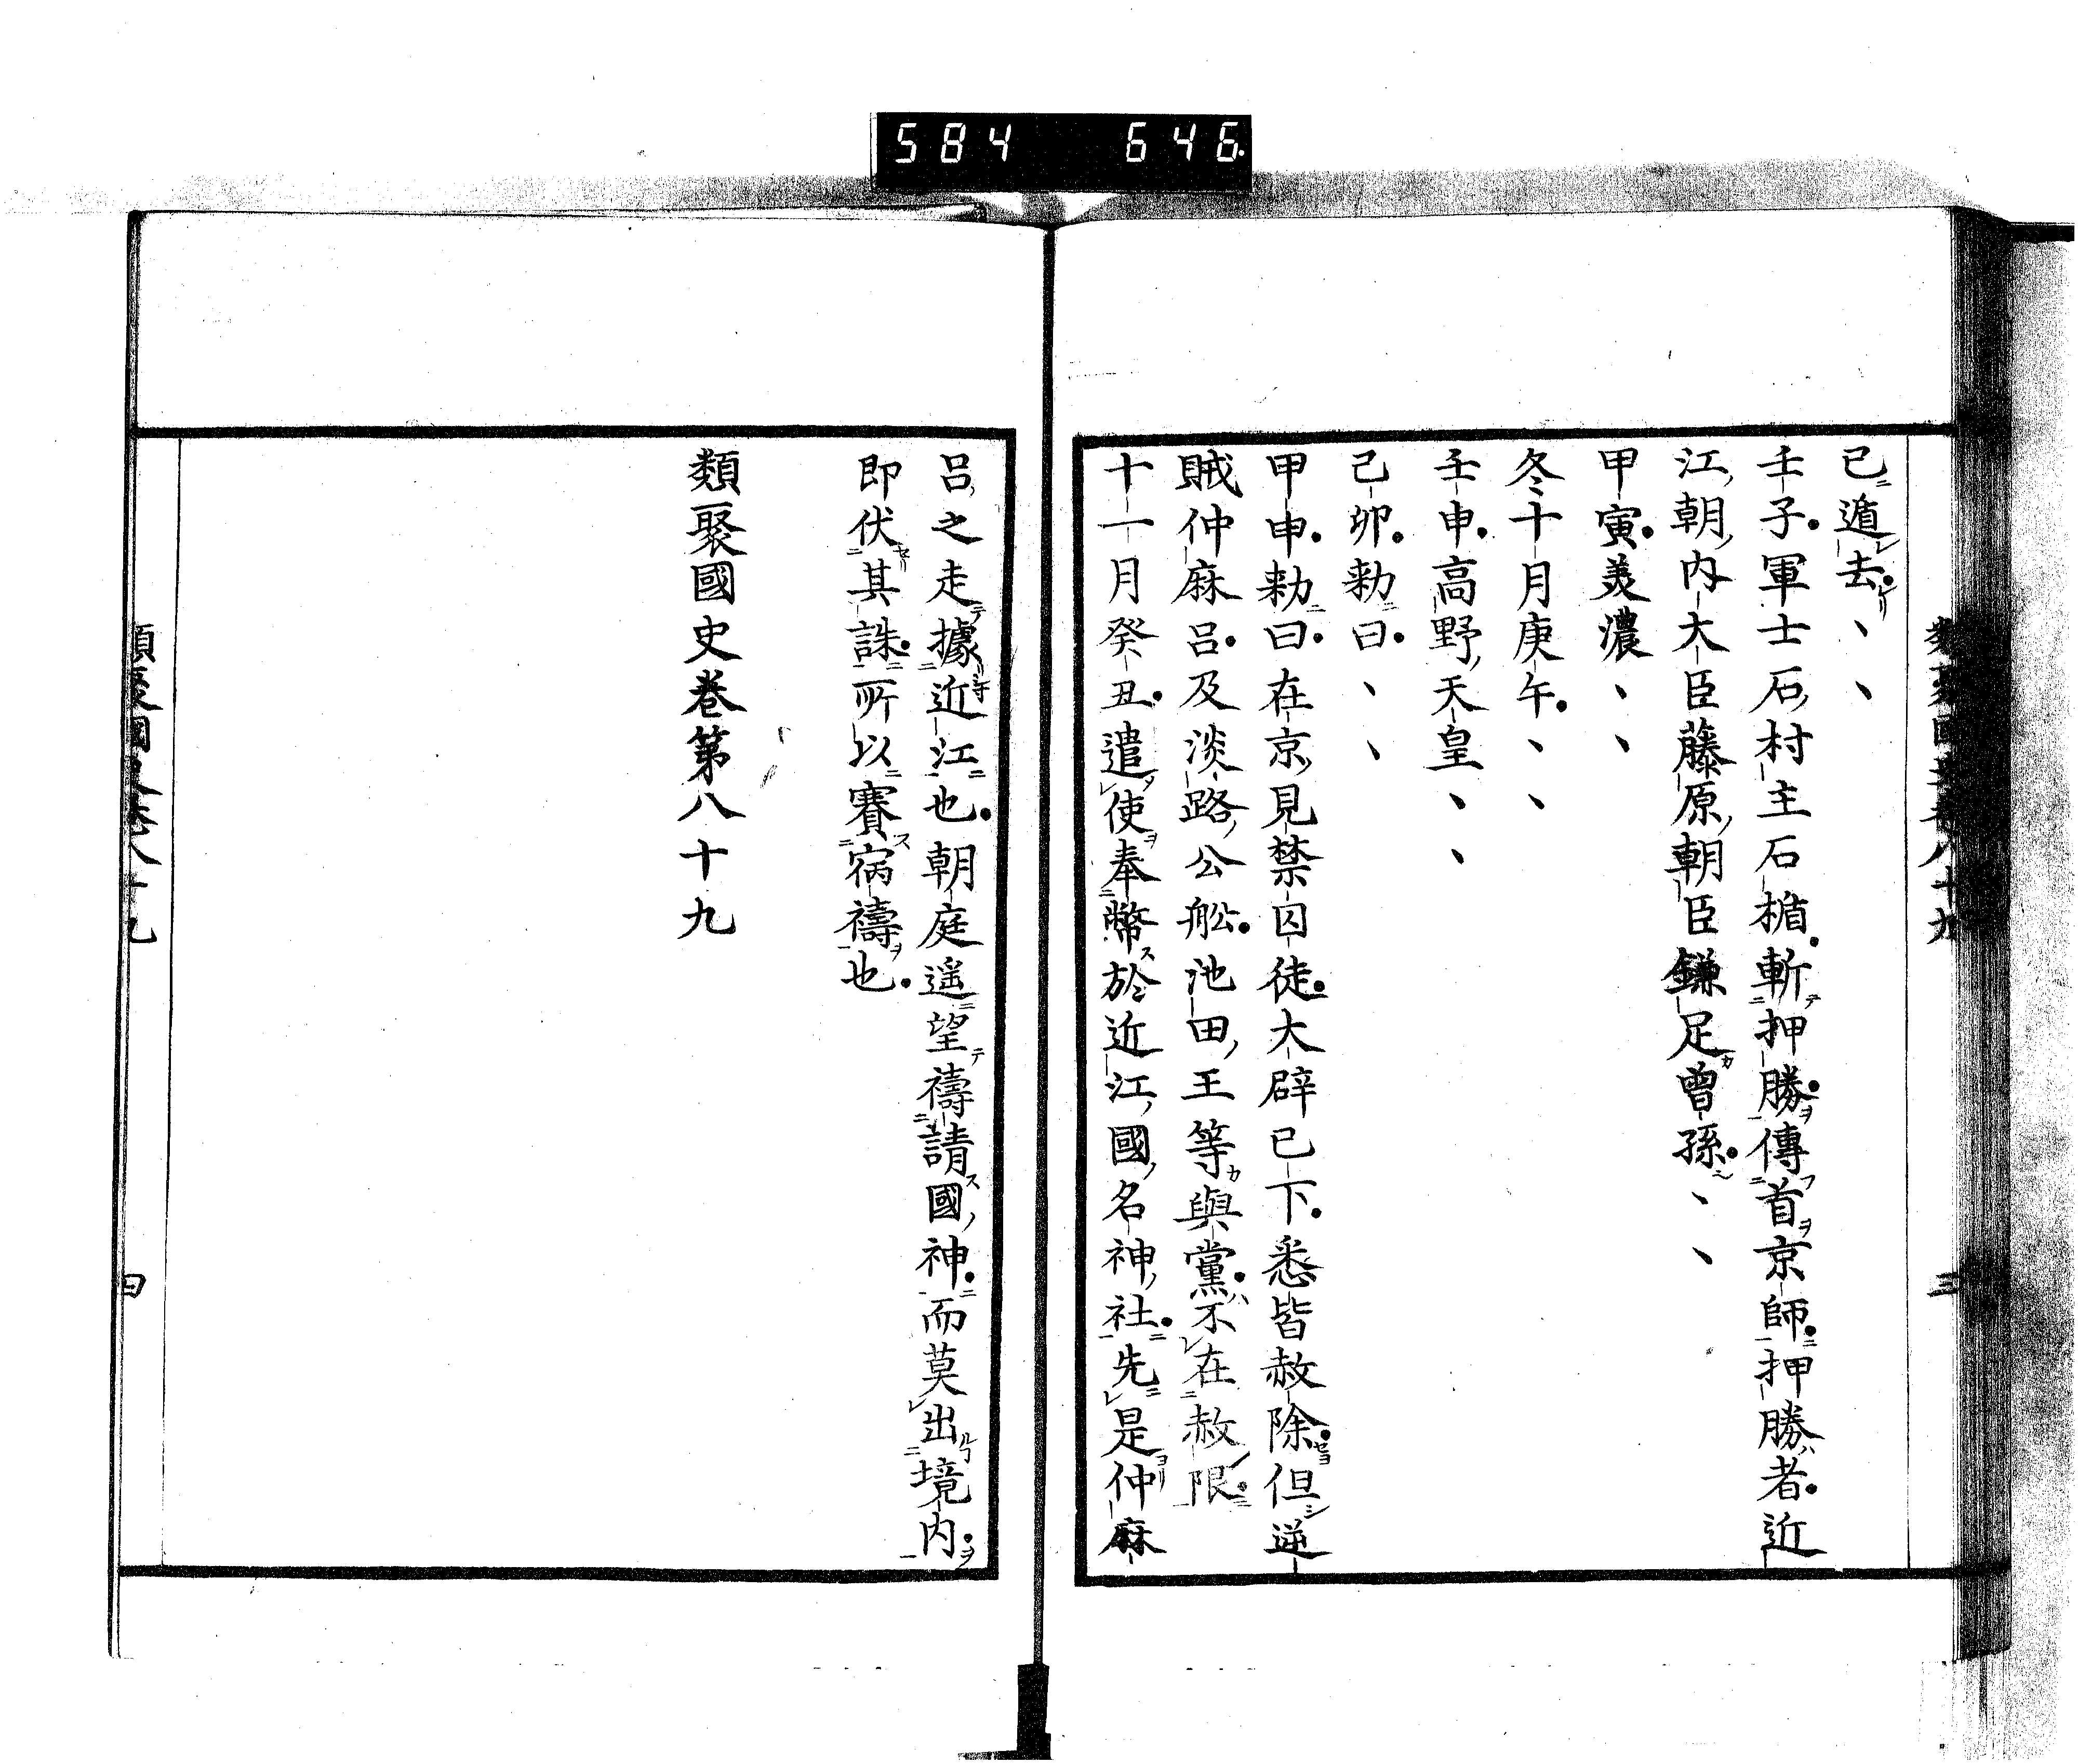 584 646
類聚國史卷八十九 三
已遁去、、
壬子軍士石村主石楯斬押勝傳首京師押勝者近
江朝内大臣藤原朝臣鎌足曾孫、、
甲寅美濃、、
冬十月庚午、、
壬申高野天皇、、
己卯勅曰、、
甲申勅曰在京見禁囚徒大辟已下悉皆赦除但逆
賊仲麻呂及淡路公舩池田王等與黨不在赦限
十一月癸丑遣使奉幣於近江國名神社先是仲麻
呂之走據近江也朝庭遥望禱請國神而莫出境内
即伏其誅所以賽宿禱也
類聚國史卷第八十九
類聚國史卷八十九